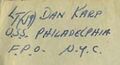 LT(JG) DAN KARP
U.S.S. PHILADELPHIA
F.P.O. N.Y.C.